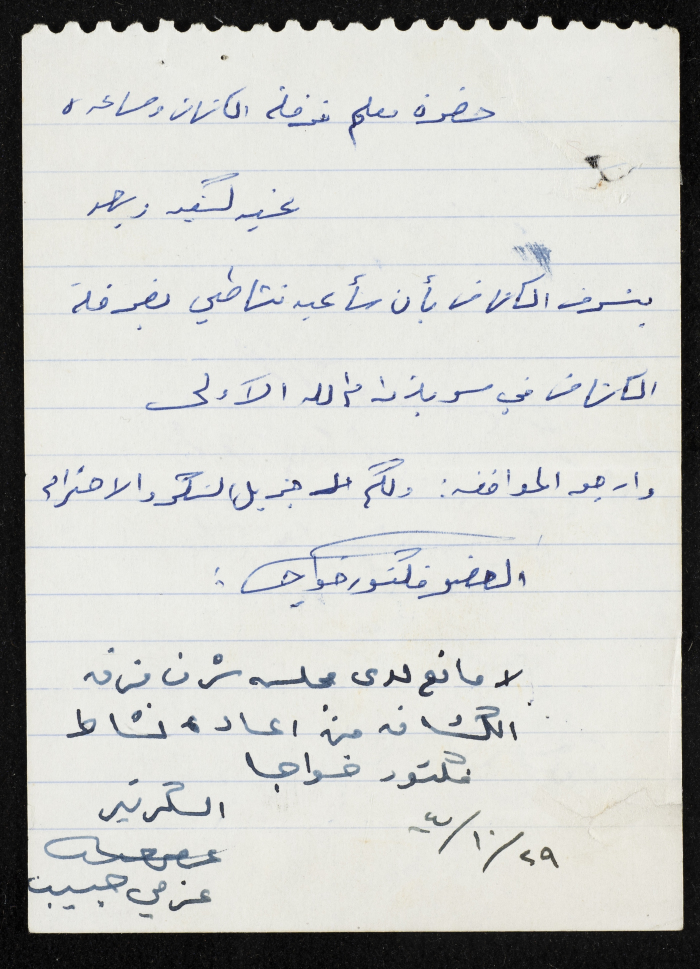 حضرة معلم فرقة الكشاف ومساعده
تحية كشفيه وبعد
بشرف الكشاف بأن سأعيد نشاطي بفرقة
الكشاف في سرية رام الله الاولى
وارجو الموافقه: ولكم جزيل الشكر والاحترام
العضو فكتور خواجا :
لا مانع لدى مجلس شرف فرقة
الكشافه من اعادة نشاط
فكتور خواجا
السكرتير
٢٩/١٠/
عزمي حبيب